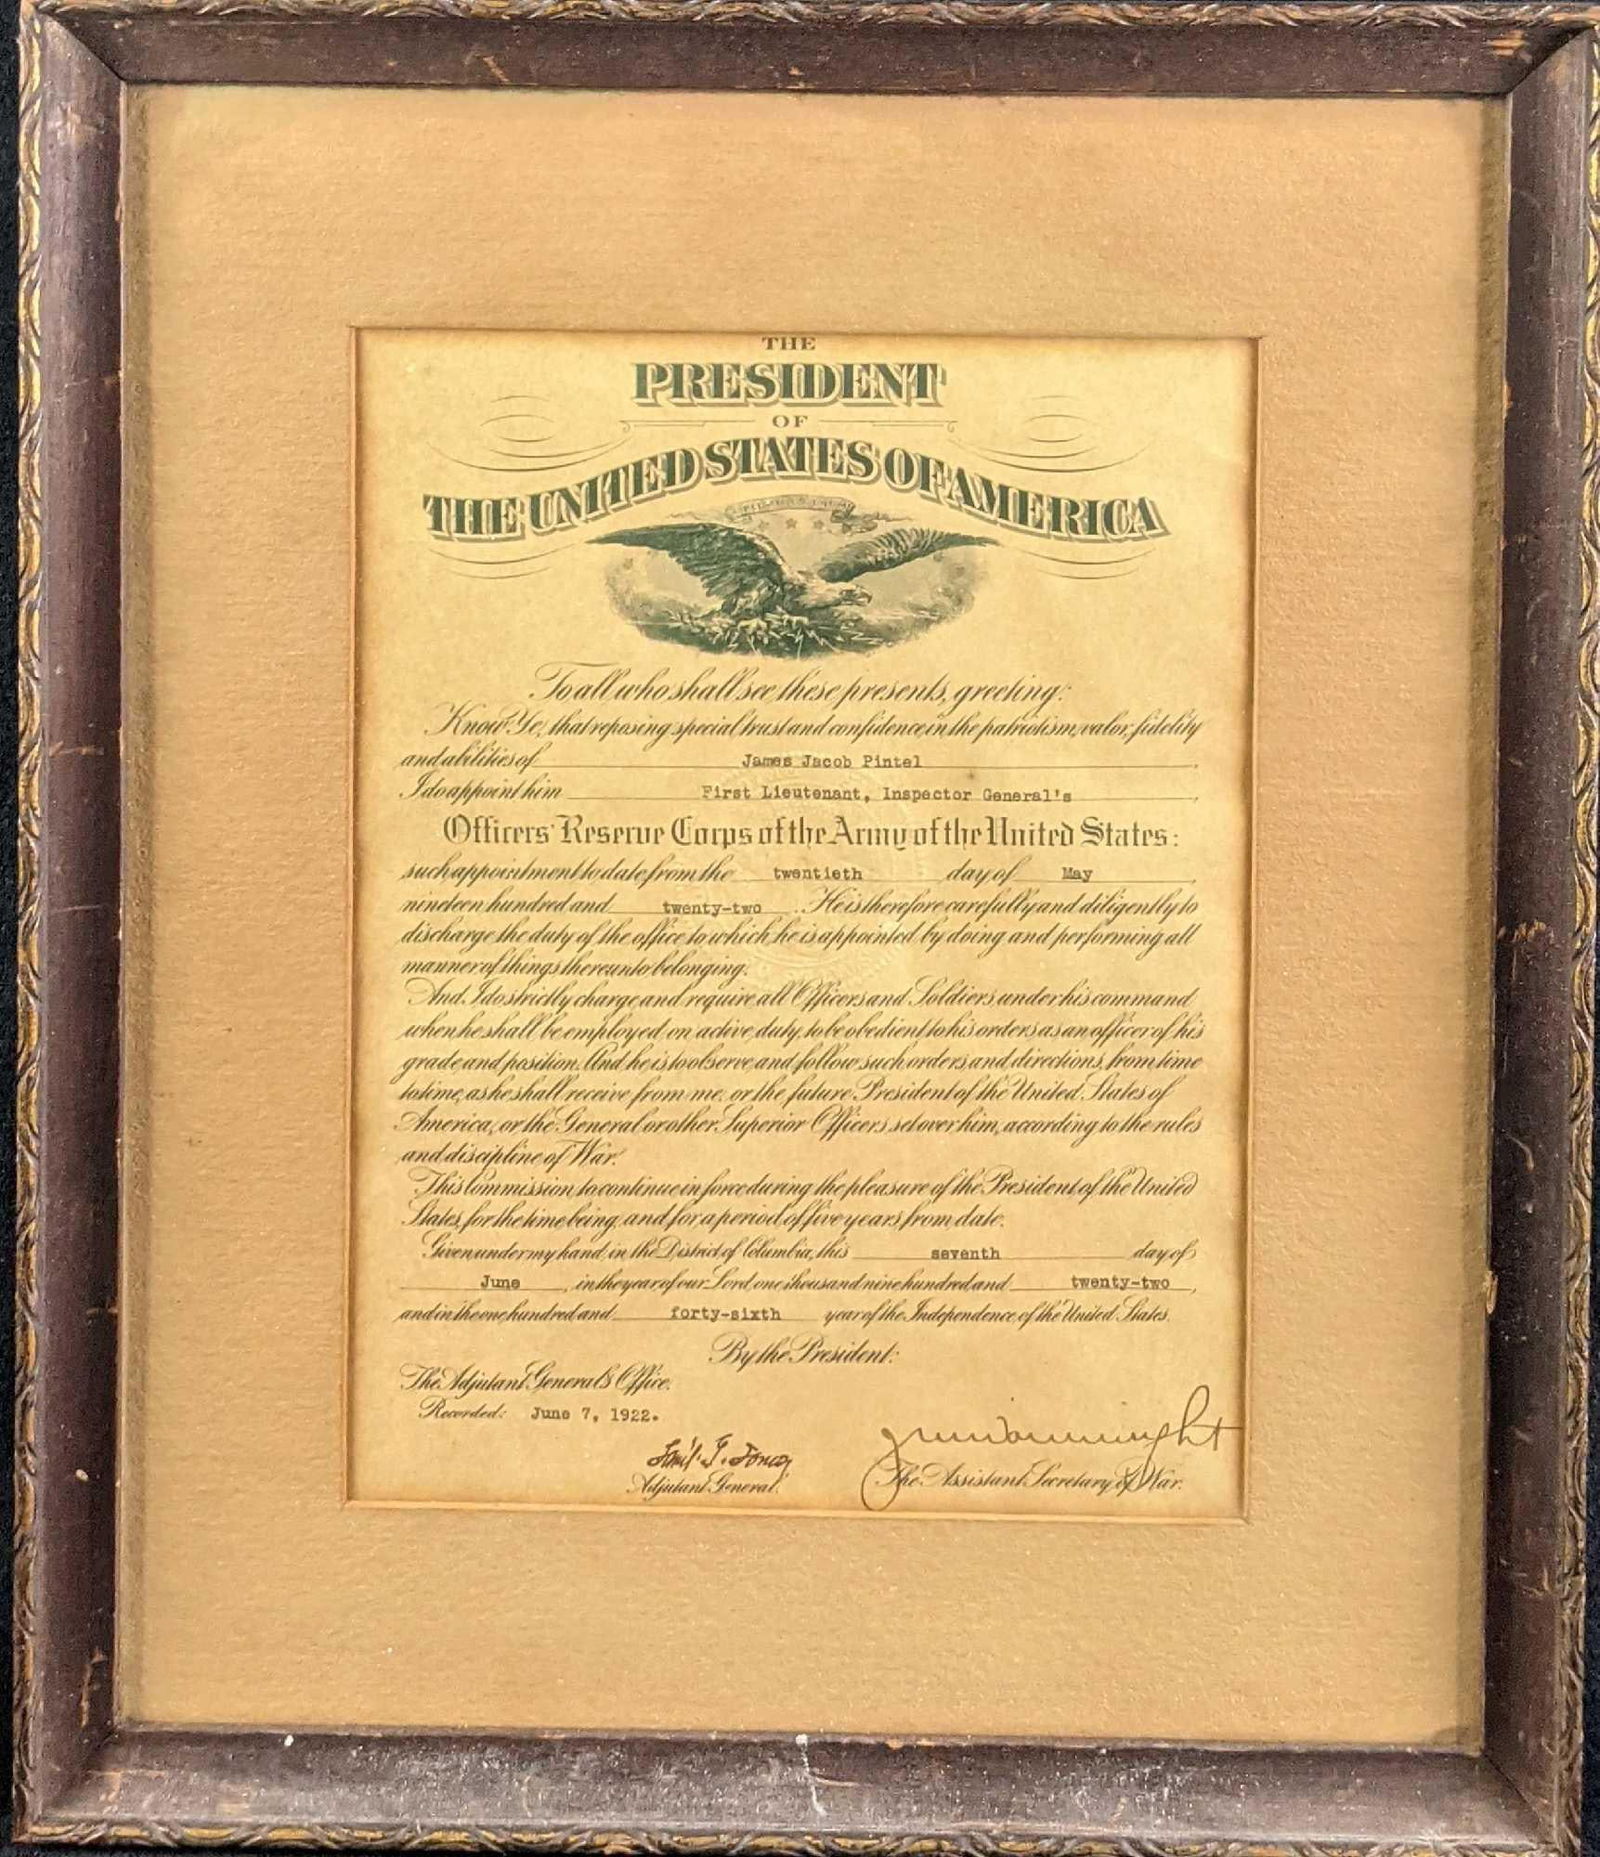 THE
PRESIDENT
OF
THE UNITED STATES OF AMERICA
To all who shall see these presents, greeting:
Know Ye, that reposing special trust and confidence in the patriotism, valor, fidelity
and abilities of James Jacob Pintel,
I do appoint him First Lieutenant, Inspector General's,
Officers' Reserve Corps of the Army of the United States:
such appointment to date from the twentieth day of May,
nineteen hundred and twenty-two. He is therefore carefully and diligently to
discharge the duty of the office to which he is appointed by doing and performing all
manner of things thereunto belonging.
And I do strictly charge and require all Officers and Soldiers under his command
when he shall be employed on active duty, to be obedient to his orders as an officer of his
grade and position. And he is to observe and follow such orders and directions, from time
to time, as he shall receive from me, or the future President of the United States of
America, or the General or other Superior Officers set over him, according to the rules
and discipline of War.
This Commission to continue in force during the pleasure of the President of the United
States, for the time being, and for a period of five years from date.
Given under my hand, in the District of Columbia, this seventh day of
June, in the year of our Lord one thousand nine hundred and twenty-two,
and in the one hundred and forty-sixth year of the Independence of the United States.
By the President:
The Adjutant General's Office.
Recorded: June 7, 1922.
Adjutant General.
The Assistant Secretary of War.